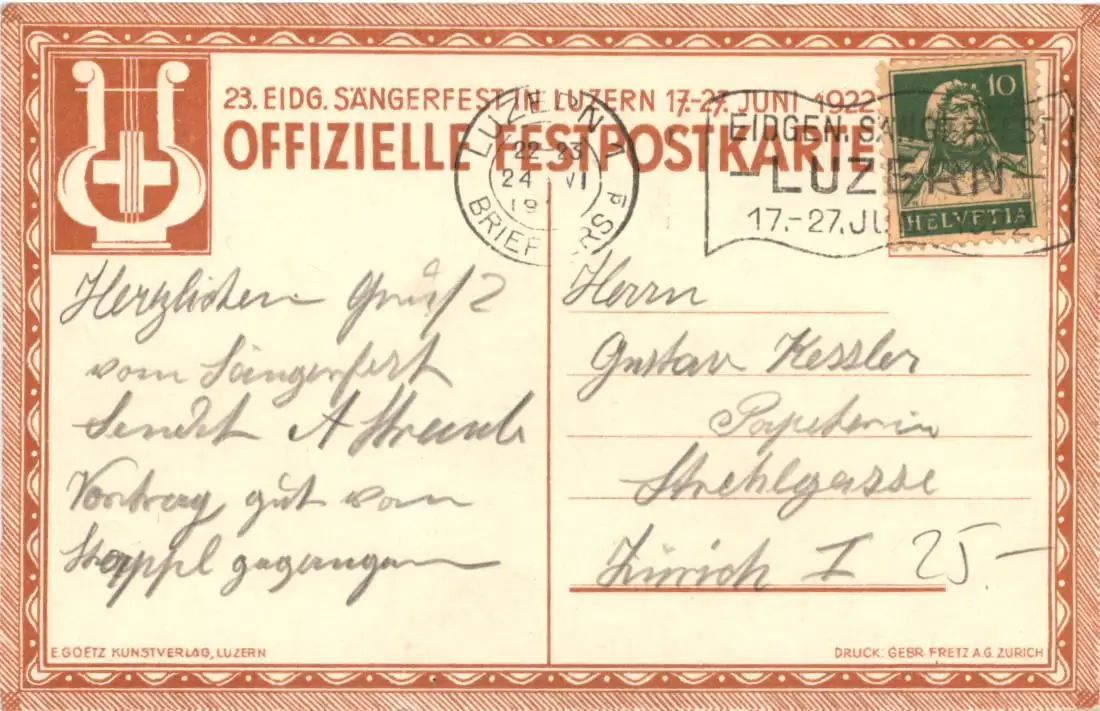 23. EIDG. SÄNGERFEST IN LUZERN 17-27. JUNI 1922
OFFIZIELLE FESTPOSTKARTE
LUZERN 1
22-23
24 VI
19
BRIEF
EIDGEN. SÄNGERFEST
-LUZERN-
17.-27. JUNI 1922
10
HELVETIA
Herzlichen Gruß
vom Sängerfest
Sendet A
Vortrag gut vom
Stappl gegangen
Herrn
Gustav Kessler
Papeterie
Strehlgasse
Zürich I 25.-
E. GOETZ KUNSTVERLAG, LUZERN
DRUCK: GEBR. FRETZ A.G. ZÜRICH